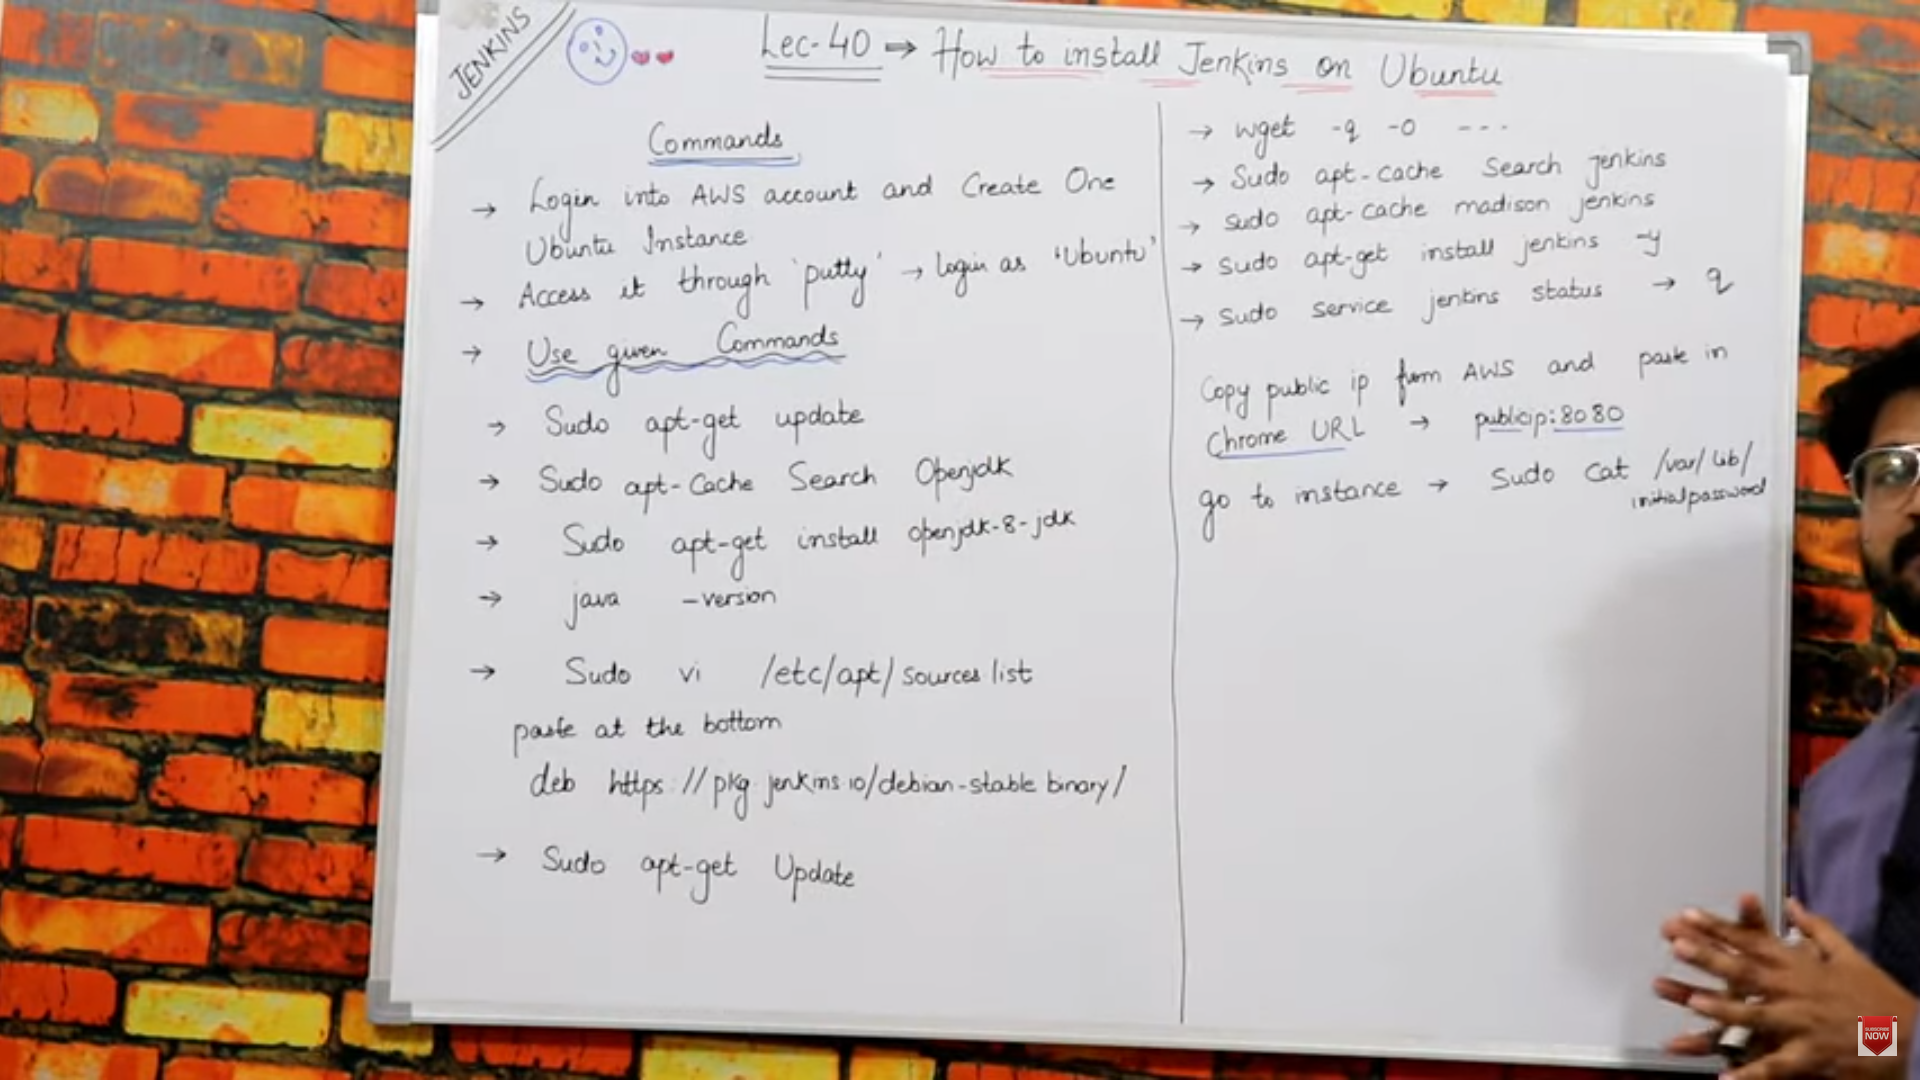 JENKINS
Lec-40 → How to install Jenkins on Ubuntu
Commands
→ Login into AWS account and Create One
Ubuntu Instance
→ Access it through 'putty' → login as 'Ubuntu'
→ Use given Commands
→ Sudo apt-get update
→ Sudo apt-Cache Search Openjdk
→ Sudo apt-get install openjdk-8-jdk
→ java -version
→ Sudo vi /etc/apt/sources list
paste at the bottom
deb https://pkg.jenkins.io/debian-stable binary/
→ Sudo apt-get Update
→ wget -q -O ---
→ Sudo apt-cache Search jenkins
→ sudo apt-cache madison jenkins
→ sudo apt-get install jenkins -y
→ sudo service jenkins status → q
Copy public ip from AWS and paste in
Chrome URL → publicip:8080
go to instance → Sudo cat /var/lib/
initialpassword
SUBSCRIBE
NOW